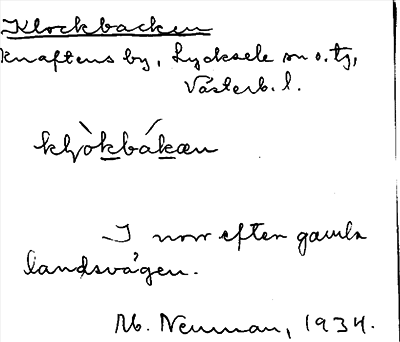 Klockbacken
Knaftens by, Lycksele sn o. tg,
Västerb. l.
kḷòkbákæn
I norr efter gamla
landsvägen.
M. Neuman, 1934.